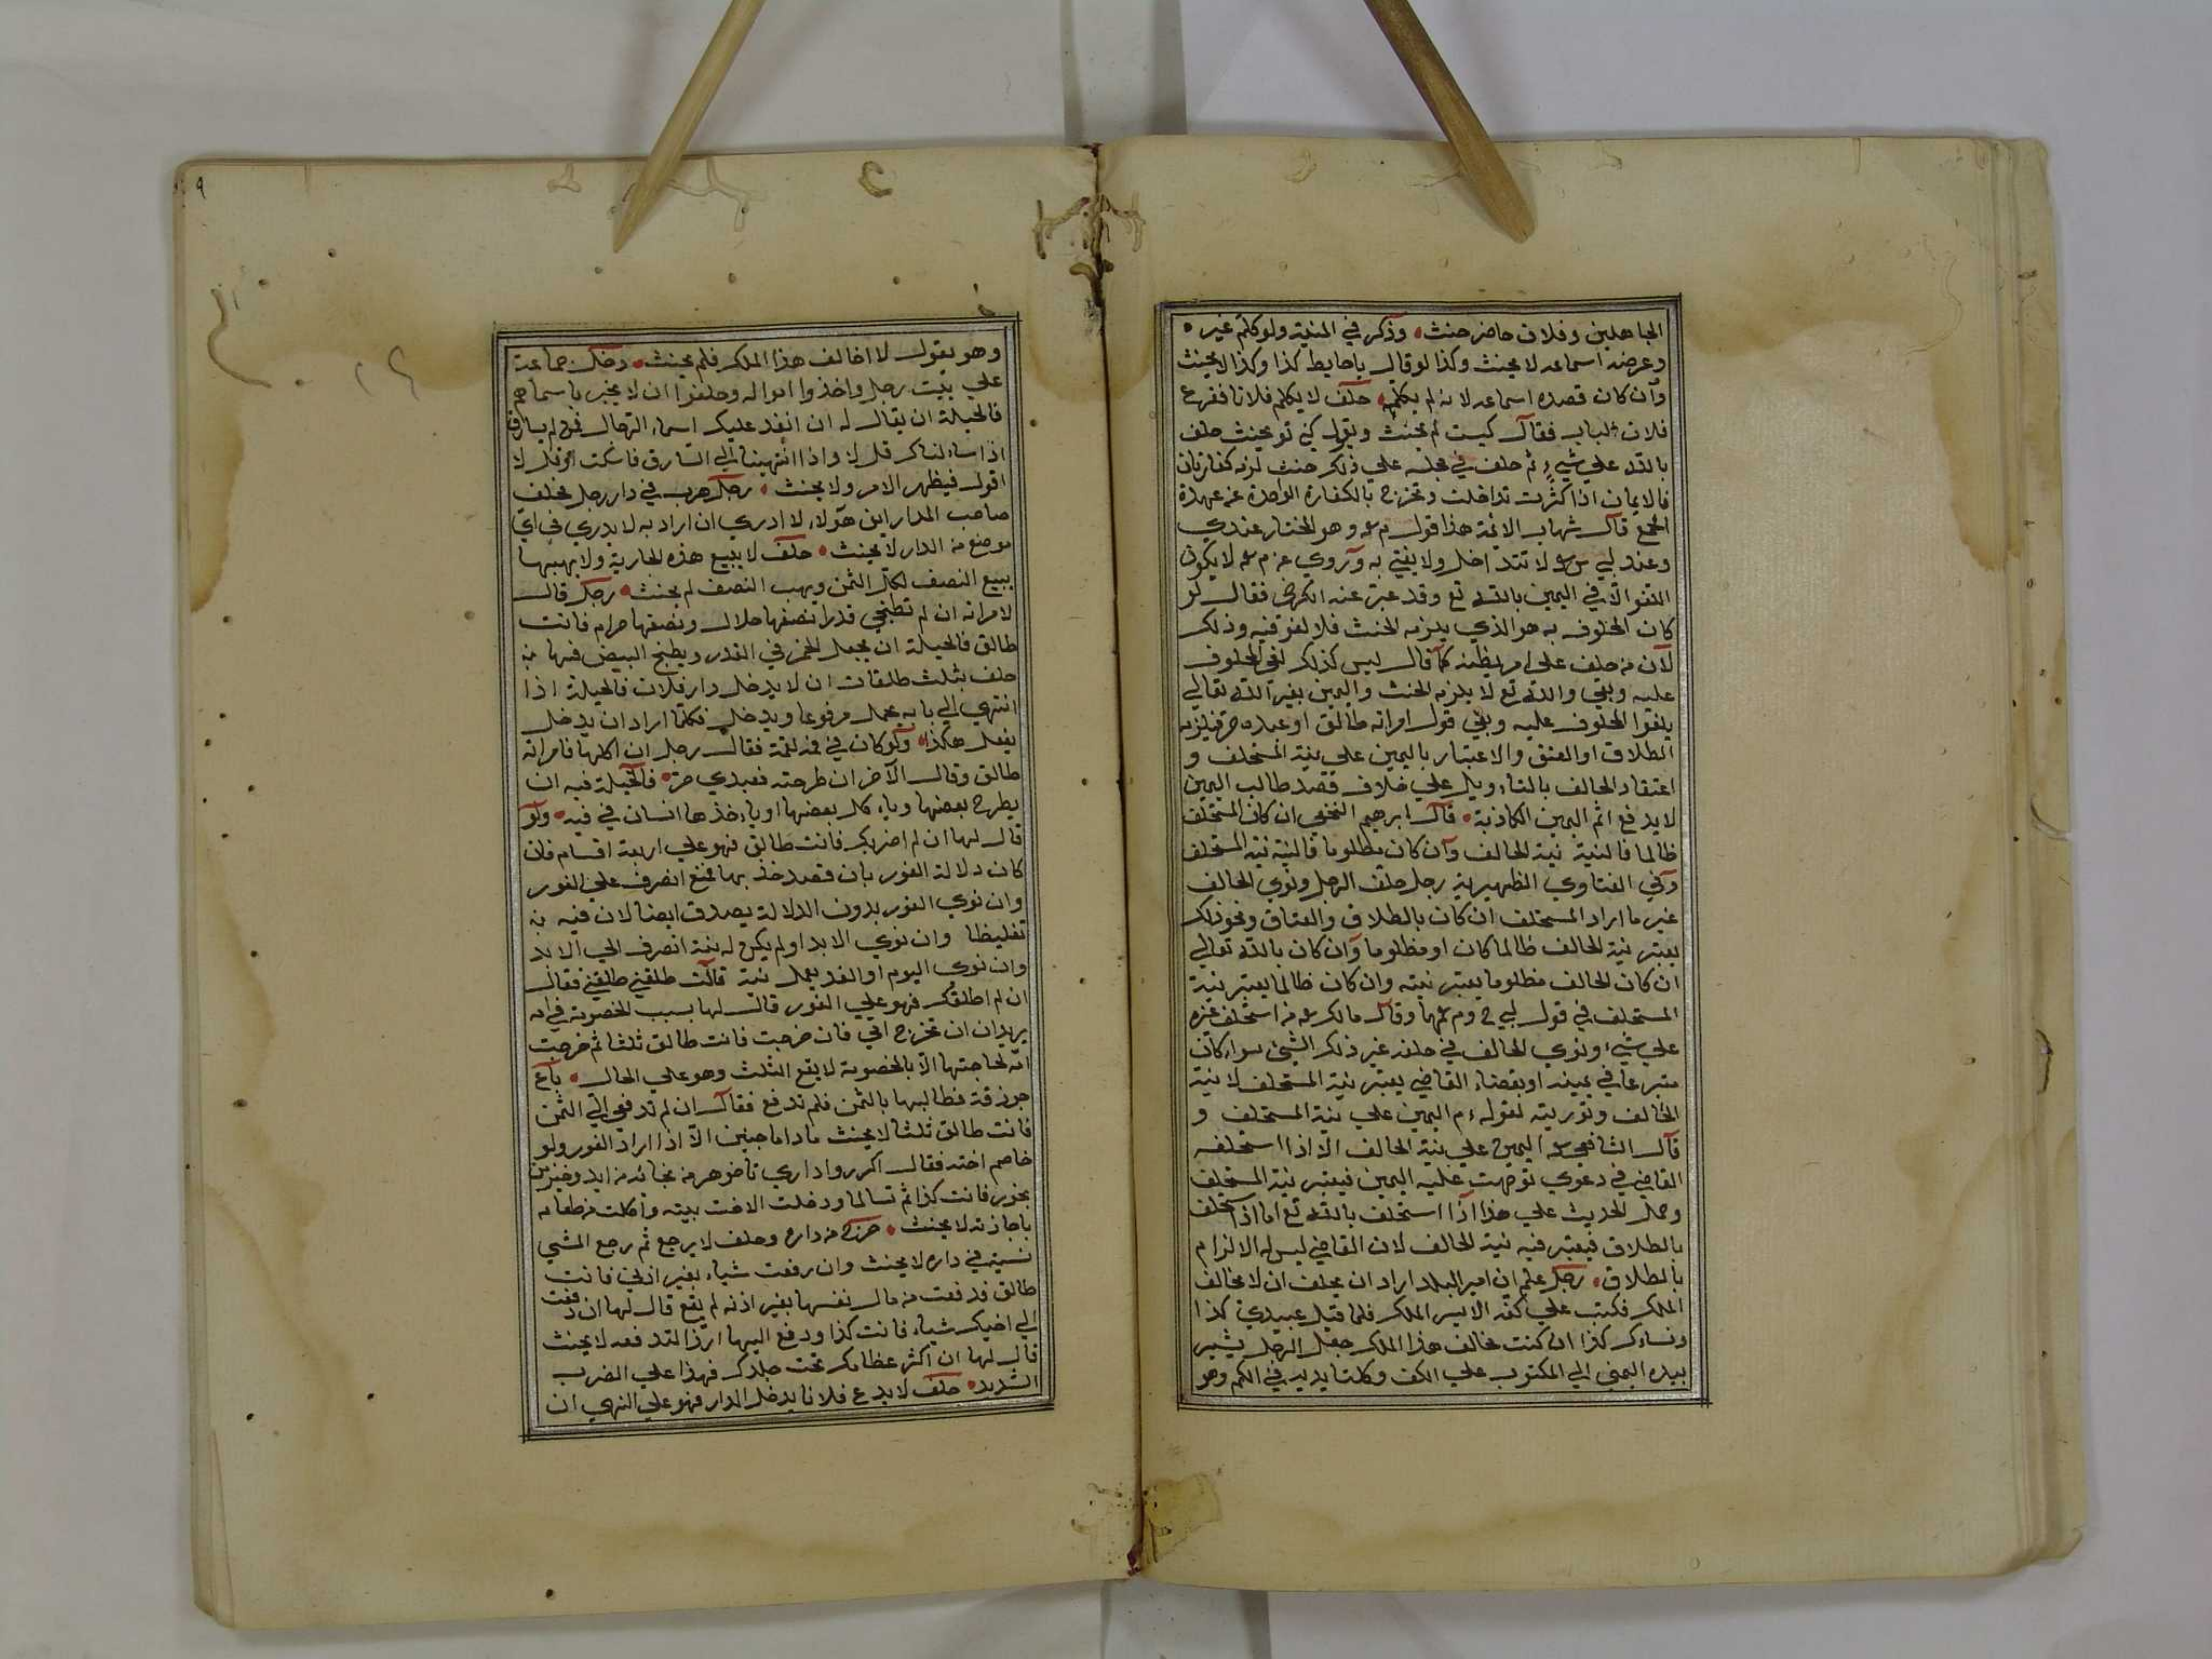 الجاهلين وفلان حاضر حنث وذكر في المنية ولو كلم غيره
وغرضه اسماعه لا يحنث وكذا لو قال يا حايط كذا وكذا لا يحنث
وان كان قصده اسماعه لانه لم يكلمه حلف لا يكلم فلانا فقرع
فلان الباب فقال كيست لم يحنث وبقوله كي تو يحنث حلف
بالله علي شيء ثم حلف في مجلسه علي ذلك حنث لزمه كفارتان
فالايمان اذا كثرت تداخلت وتخرج بالكفارة الواحدة عن عهدة
الجمع قال شهاب الائمة هذا قول م رحمه وهو المختار عندي
وعند ابي س رحمه لا تتداخل ولا يفتي به وروي عن م رحمه لا يكون
اللغو الا في اليمين بالله تع وقد عبر عنه الكرخي فقال لو
كان المحلوف به هو الذي يلزمه الحنث فلا لغو فيه وذلك
لان من حلف علي امر يظنه كما قال ليس كذلك لغي المحلوف
عليه وبقي والله تع لا يلزمه الحنث واليمين بغير الله تعالي
يلغوا المحلوف عليه وبقي قوله امراته طالق او عبده حر فيلزمه
الطلاق او العتق والاعتبار باليمين علي نية المستحلف و
اعتقاد الحالف بالتاءويل علي خلاف قصد طالب اليمين
لا يدفع اثم اليمين الكاذبة قال ابرهيم النخعي ان كان المستحلف
ظالما فالنية نية الحالف وان كان مظلوما فالنية نية المستحلف
وفي الفتاوي الظهيرية رجل حلف الرجل ونوي الحالف
غير ما اراد المستحلف ان كان بالطلاق والعتاق ونحو ذلك
يعتبر نية الحالف ظالما كان او مظلوما وان كان بالله تعالي
ان كان الحالف مظلوما يعتبر نيته وان كان ظالما يعتبر نية
المستحلف في قول ابي ح وم رحمهما وقال مالك رحمه من استحلف غيره
علي شيء ونوي الحالف في حلفه غير ذلك الشيء سواء كان
متبرعا في يمينه او بقضاء القاضي يعتبر نية المستحلف لا نية
الحالف وتوريته لقوله ءم اليمين علي نية المستحلف و
قال الشافعي رحمه اليمين علي نية الحالف الا اذا استحلفه
القاضي في دعوي توجهت عليه اليمين فيعتبر نية المستحلف
وحمل الحديث علي هذا اذا استحلف بالله تع اما اذا استحلف
بالطلاق فيعتبر فيه نية الحالف لان القاضي ليس له الالزام
بالطلاق رجل علم ان امير البلد اراد ان يحلف ان لا يخالف
الملك فكتب علي كفه الايسر الملك فلما قيل عبيدك كذا
ونساءك كذا ان كنت تخالف هذا الملك جعل الرجل يشير
بيده اليمني الي المكتوب علي الكف وكلتا يديه في الكم وهو
وهو يقول لا اخالف هذا الملك فلم يحنث دخل جماعة
علي بيت رجل واخذوا امواله وحلفوا ان لا يخبر باسماءهم
فالحيلة ان يقال له ان انفد عليك اسماء الرجال فمن لم يسارق
اذا ساءلناك قل لا واذا انتهينا الي السارق فاسكت او قل لا
اقول فيظهر الامر ولا يحنث رجل هرب في دار رجل فحلف
صاحب الدار اين هولاء لا ادري ان اراد به لا يدري في اي
موضع من الدار لا يحنث حلف لا يبيع هذه الجارية ولا يهبها
يبيع النصف بكل الثمن ويهب النصف لم يحنث رجل قال
لامراته ان لم تطبخي قدرا نصفها حلال ونصفها حرام فانت
طالق فالحيلة ان يجعل الخمر في القدر ويطبخ البيض فيها منه
حلف بثلث طلقات ان لا يدخل دار فلان فالحيلة اذا
انتهي الي بابه يحمل مرفوعا ويدخل فكلما اراد ان يدخل
يفعل هكذا ولو كان في فمه لقمة فقال رجل ان اكلها فامراته
طالق وقال الآخر ان طرحته فعبدي حر فالحيلة فيه ان
يطرح بعضها وياءكل بعضها او ياءخذها انسان في فيه ولو
قال لها ان لم اضربك فانت طالق فهو علي اربعة اقسام فان
كان دلالة الفور بان قصد ضربها فمنع انصرف علي الفور
وان نوي الفور بدون الدلالة يصدق ايضا لان فيه به
تغليظا وان نوي الابد او لم يكن له نية انصرف الي الابد
وان نوي اليوم او الغد يعمل نية قالت طلقني طلقني فقال
ان لم اطلقك فهو علي الفور قال لها بسبب الخصومة في امه
يريد ان ان تخرج امي فان خرجت فانت طالق ثلثا ثم خرجت
امه لحاجتها الا بالخصومة لا يقع الثلث وهو علي الحال باع
جوزقة فطالبها بالثمن فلم تدفع فقال ان لم تدفعي الي الثمن
فانت طالق ثلثا لا يحنث ما داما حيين الا اذا اراد الفور ولو
خاصم اخته فقال اكر روا داري تا خوهر من بخانه من ايد وخير من
بخورد فانت كذا ثم تسالما ودخلت الاخت بيته واكلت من طعامه
باجازته لا يحنث خرج من داره وحلف لا يرجع ثم رجع المشي
نسيه في داره لا يحنث وان رفعت شياء بغير اذني فانت
طالق فدفعت من مال نفسها بغير اذنه لم يقع قال لها ان دفعت
الي اخيك شياء فانت كذا ودفع اليها ارزا لتدفعه لا يحنث
قال لها ان اكثر عظامك تحت جلدك فهذا علي الضرب
الشديد حلف لا يدع فلانا يدخل الدار فهو علي النهي ان